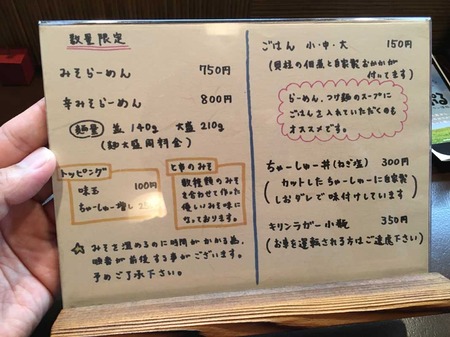 数量限定
みそらーめん 750円
辛みそらーめん 800円
麺量 並140g 大盛210g
(麺大盛同料金)
トッピング
味玉 100円
ちゅーしゅー増し
数種類のみそ
を合わせて作った
優しいみそ味に
なっております。
☆みそを温めるのに時間がかかる為、
時間が前後する事がございます。
予めご了承下さい。
ごはん 小・中・大 150円
(貝柱の佃煮と自家製おかかが
付いてます)
らーめん、つけ麺のスープに
ごはんを入れていただくのも
オススメです。
ちゅーしゅー丼(ねぎ塩) 300円
(カットしたちゅーしゅーに自家製
しおダレで味付けしています)
キリンラガー小瓶 350円
(お車を運転される方はご遠慮下さい)